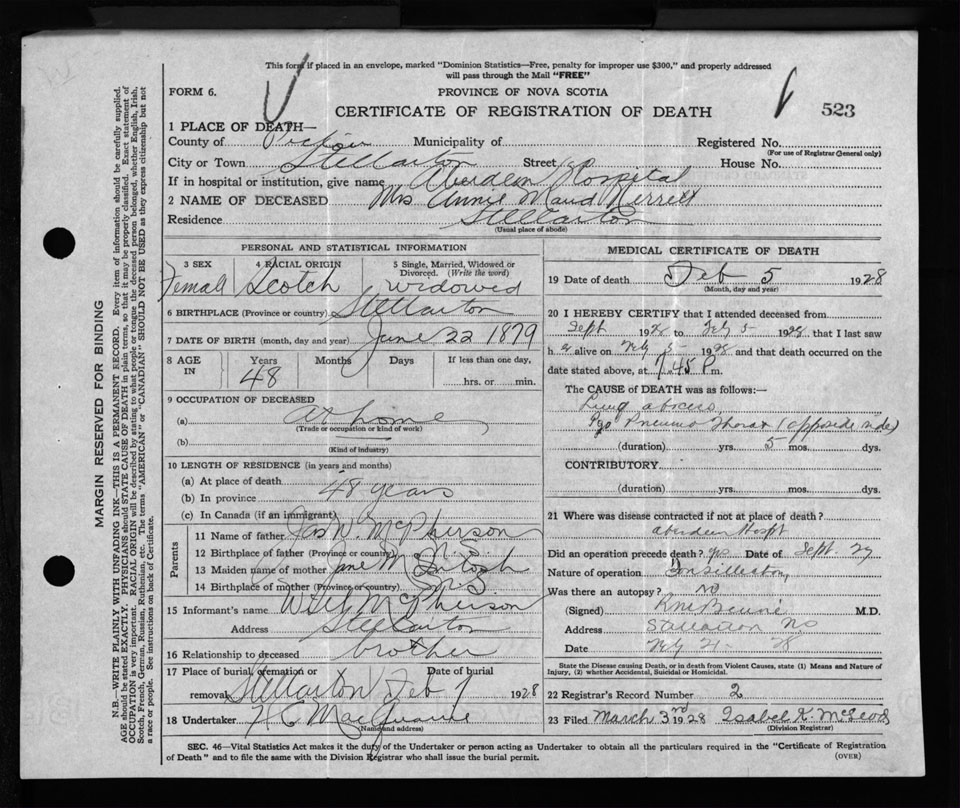 This form if placed in an envelope, marked "Dominion Statistics—Free, penalty for improper use $300," and properly addressed
will pass through the Mail "FREE"
FORM 6.
PROVINCE OF NOVA SCOTIA
CERTIFICATE OF REGISTRATION OF DEATH
523
1 PLACE OF DEATH—
County of Pictou Municipality of Registered No.
(For use of Registrar General only)
City or Town Stellarton Street House No.
If in hospital or institution, give name Aberdeen Hospital
2 NAME OF DECEASED Mrs Annie Maud
Residence Stellarton
(Usual place of abode)
PERSONAL AND STATISTICAL INFORMATION
3 SEX 4 RACIAL ORIGIN 5 Single, Married, Widowed or Divorced. (Write the word)
Female Scotch Widowed
6 BIRTHPLACE (Province or country) Stellarton
7 DATE OF BIRTH (month, day and year) June 22 1879
8 AGE IN Years Months Days If less than one day,
48 hrs. or min.
9 OCCUPATION OF DECEASED
(a) At home
(Trade or occupation or kind of work)
(b)
(Kind of industry)
10 LENGTH OF RESIDENCE (in years and months)
(a) At place of death
(b) In province 48 years
(c) In Canada (if an immigrant)
Parents
11 Name of father Jas W. McPherson
12 Birthplace of father (Province or country)
13 Maiden name of mother Jane McIntosh
14 Birthplace of mother (Province or country) N.S.
15 Informant's name McPherson
Address Stellarton
16 Relationship to deceased brother
17 Place of burial, cremation or removal Stellarton Date of burial Feb 7 1928
18 Undertaker
(Name and address)
MEDICAL CERTIFICATE OF DEATH
19 Date of death Feb 5 1928
(Month, day and year)
20 I HEREBY CERTIFY that I attended deceased from
Sept 192 to Feb 5 1928, that I last saw
h alive on Feb 5 1928 and that death occurred on the
date stated above, at 7.45 P m.
The CAUSE OF DEATH was as follows:
Lung abscess
Pneumo Thorax (opposide side)
(duration) yrs. 5 mos. dys.
CONTRIBUTORY
(duration) yrs. mos. dys.
21 Where was disease contracted if not at place of death?
Aberdeen Hospt
Did an operation precede death? yes Date of Sept. 27
Nature of operation
Was there an autopsy? no
(Signed) M.D.
Address
Date Feb 28
State the Disease causing Death, or in death from Violent Causes, state (1) Means and Nature of
Injury, (2) whether Accidental, Suicidal or Homicidal.
22 Registrar's Record Number 2
23 Filed March 3rd 1928 Isabel K. McLeod
(Division Registrar)
SEC. 46—Vital Statistics Act makes it the duty of the Undertaker or person acting as Undertaker to obtain all the particulars required in the "Certificate of Registration
of Death" and to file the same with the Division Registrar who shall issue the burial permit.
(OVER)
MARGIN RESERVED FOR BINDING
N.B.—WRITE PLAINLY WITH UNFADING INK—THIS IS A PERMANENT RECORD. Every item of information should be carefully supplied.
AGE should be stated EXACTLY. PHYSICIANS should STATE CAUSE OF DEATH in plain terms, so that it may be properly classified. Exact statement of
OCCUPATION is very important. RACIAL ORIGIN will be described by stating to what people or tongue the deceased person belonged, whether English, Irish,
Scotch, French, German, Russian, Ruthenian, etc. The terms "AMERICAN" or "CANADIAN" SHOULD NOT BE USED as they express citizenship but not
a race or people. See instructions on back of Certificate.